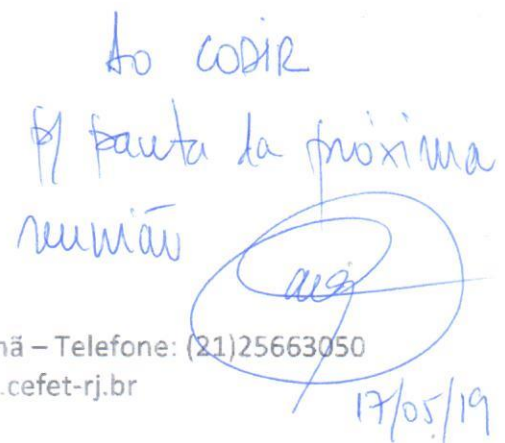 Ao CODIR
p/ pauta da próxima
reunião
nã – Telefone: (21)25663050
.cefet-rj.br
17/05/19